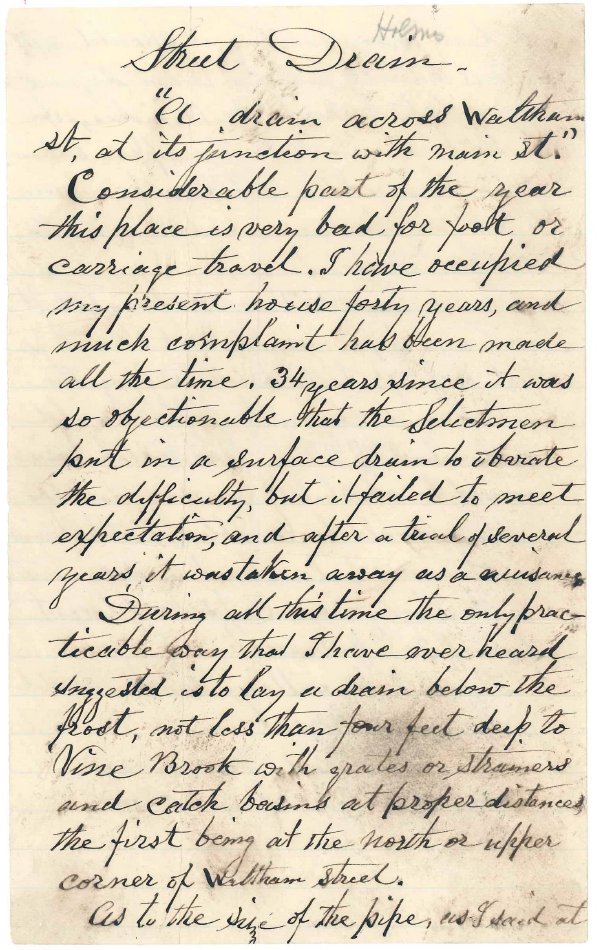 Holmes
Street Drain.
"A drain across Waltham
st, at its junction with main st."
Considerable part of the year
this place is very bad for foot or
carriage travel. I have occupied
my present house forty years, and
much complaint has been made
all the time. 34 years since it was
so objectionable that the Selectmen
put in a surface drain to
the difficulty, but it failed to meet
expectation, and after a trial of several
years it was taken away as a nuisance.
During all this time the only prac-
ticable way that I have ever heard
suggested is to lay a drain below the
frost, not less than four feet deep to
Vine Brook with grates or strainers
and catch basins at proper distances,
the first being at the north or upper
corner of Waltham street.
As to the size of the pipe, as I said at